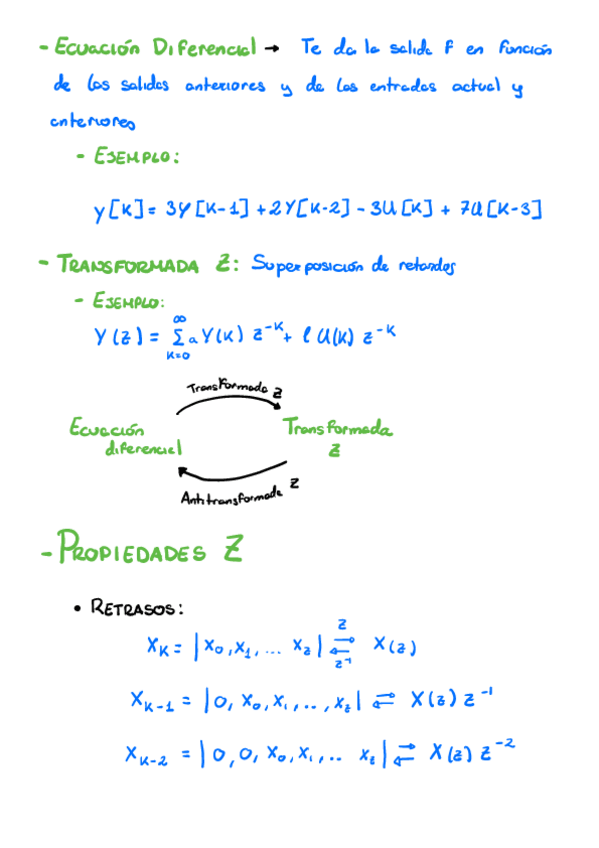 - ECUACIÓN DIFERENCIAL → Te da la salida F en función
de las salidas anteriores y de las entradas actual y
anteriores
- EJEMPLO:
y[K] = 3Y[K-1] + 2Y[K-2] - 3U[K] + 7U[K-3]
- TRANSFORMADA Z: Superposición de retardos
- EJEMPLO:
Y(z) = ∑_{K=0}^{∞} a Y(K) z^{-K} + l U(K) z^{-K}
Transformada Z
Ecuación diferencial
Transformada Z
Antitransformada Z
- PROPIEDADES Z
• RETRASOS:
X_K = |X_0, X_1, ... X_z| ⇄ X(z)
z
z^{-1}
X_{K-1} = |0, X_0, X_1, .., X_z| ⇄ X(z) z^{-1}
X_{K-2} = |0, 0, X_0, X_1, .. X_z| ⇄ X(z) z^{-2}